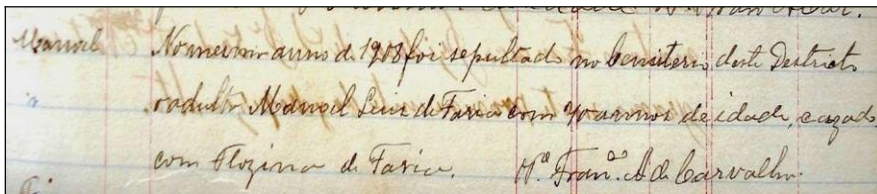 Manoel No mesmo anno de 1908 foi sepultado no Cemiterio deste Destricto
o adulto Manoel Luis de Faria com 70 annos de idade, cazado
com Flozina de Faria. Vº. Franº. A de Carvalho.